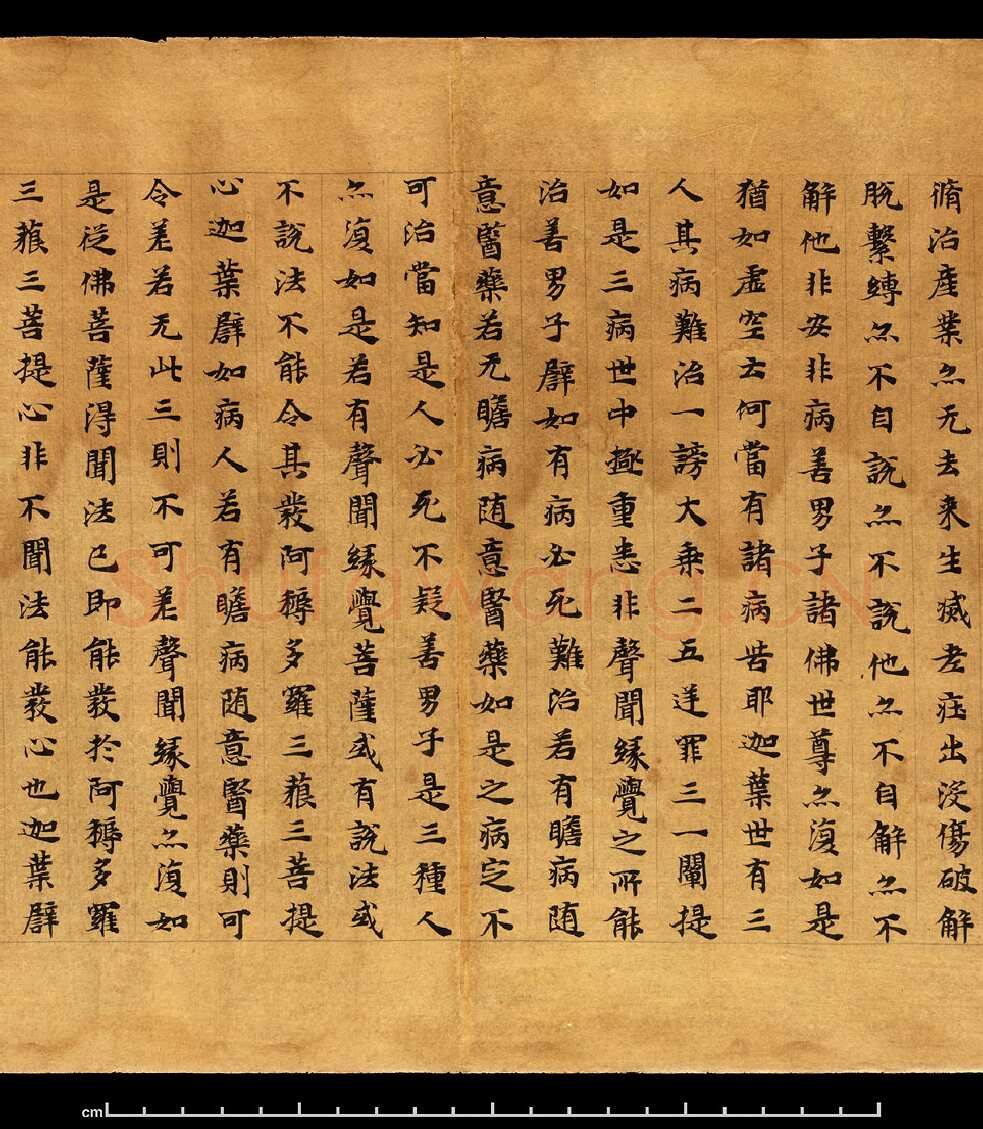 脩治産業亦无去来生滅老壮出没傷破解
脱繫縛亦不自説亦不説他亦不自解亦不
解他非安非病善男子諸佛世尊亦復如是
猶如虚空云何當有諸病苦耶迦葉世有三
人其病難治一謗大乗二五逆罪三一闡提
如是三病世中極重悉非聲聞縁覺之所能
治善男子譬如有病必死難治若有瞻病随
意醫藥若无瞻病随意醫藥如是之病定不
可治當知是人必死不疑善男子是三種人
亦復如是若有聲聞縁覺菩薩或有説法或
不説法不能令其發阿耨多羅三藐三菩提
心迦葉譬如病人若有瞻病随意醫藥則可
令差若无此三則不可差聲聞縁覺亦復如
是從佛菩薩得聞法已即能發於阿耨多羅
三藐三菩提心非不聞法能發心也迦葉譬
Shufawang.CN
cm